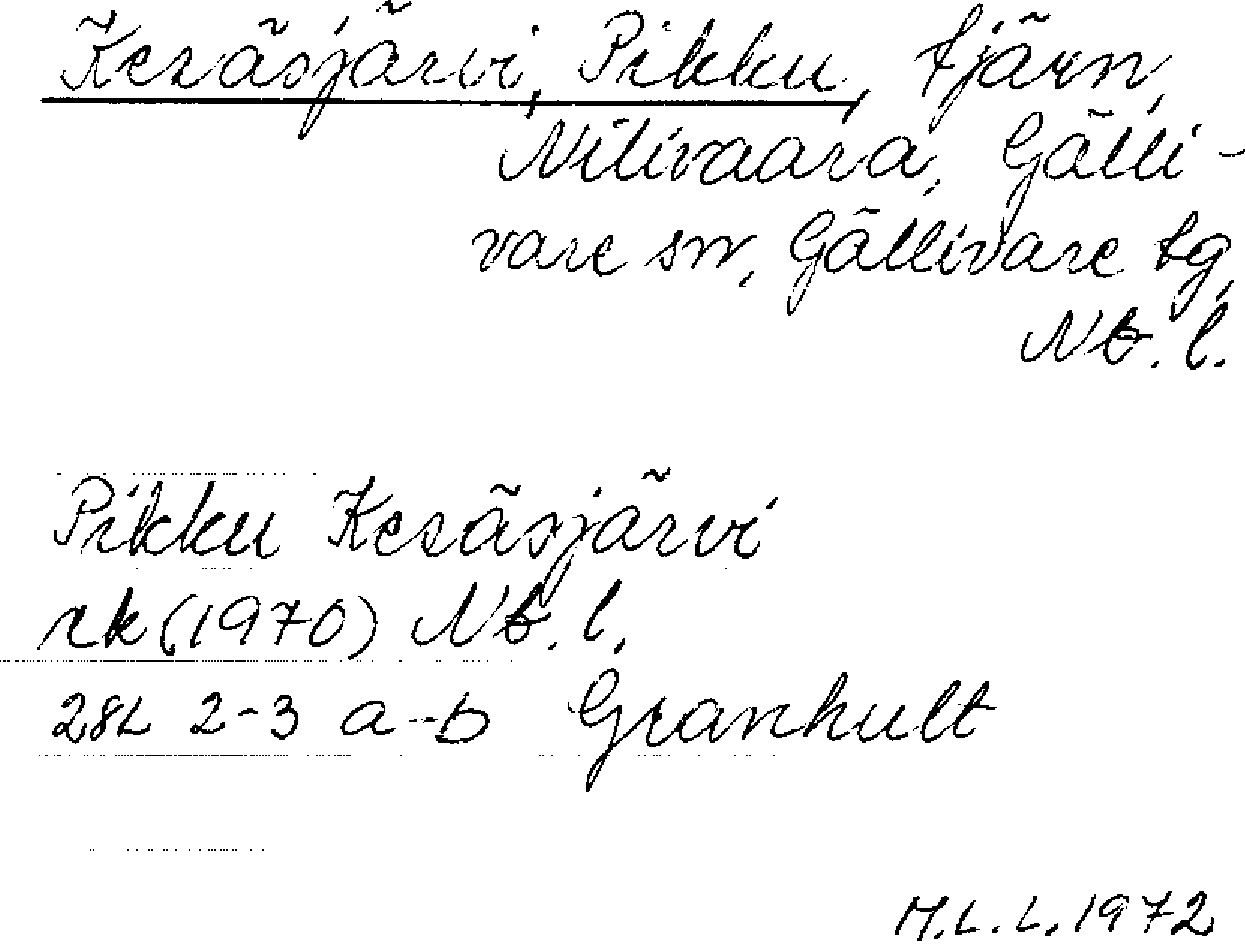 Kesäsjärvi, Pikku, tjärn,
Nilivaara, Gälli-
vare sn, Gällivare tg,
Nb. l.
Pikku Kesäsjärvi
rk (1970) Nb. l.
28L 2-3 a-b Granhult
M.L.L. 1972